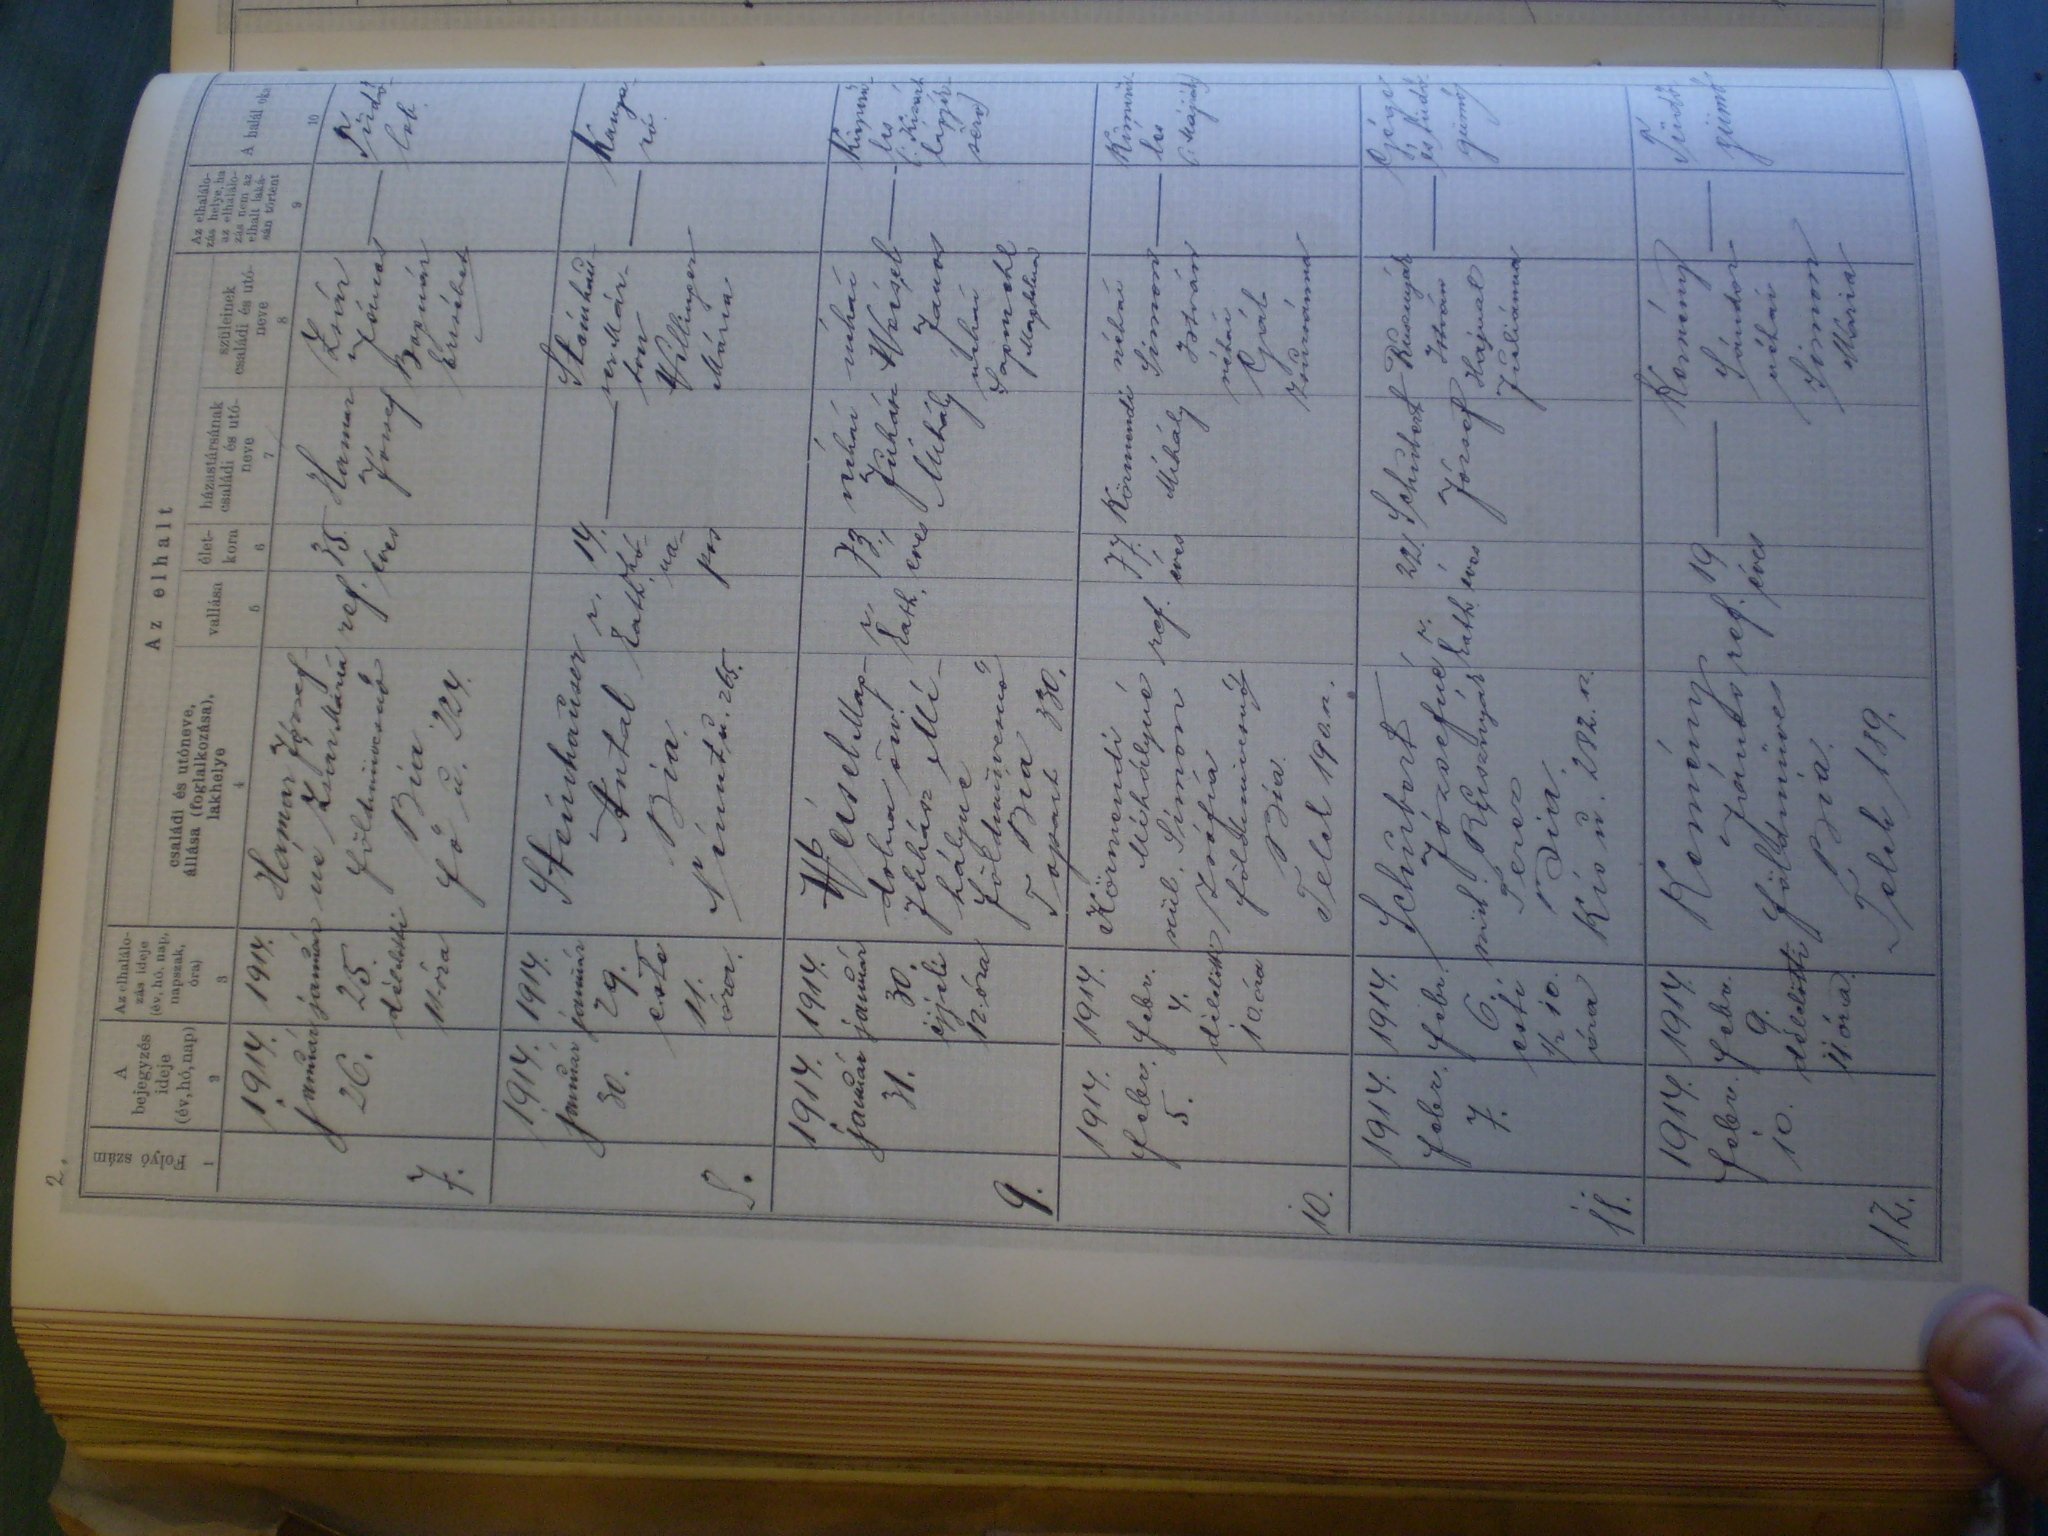 2.
Az elhalt
Folyó szám
A bejegyzés ideje (év, hó, nap)
Az elhalálozás ideje (év, hó, nap, napszak, óra)
családi és utóneve, állása (foglalkozása), lakhelye
vallása
életkora
házastársának családi és utóneve
szüleinek családi és utóneve
Az elhalálozás helye, ha az elhalálozás nem az elhalt lakásán történt
A halál oka
1 2 3 4 5 6 7 8 9 10
7.
1914.
január
26.
1914.
január
25.
délelőtti
11 óra
Hamar József
né Zsur Mária
földmivesnő
Bia
Fő u. 224.
ref.
35.
éves
Hamar
József
Zsur
János
Bognár
Erzsébet
Tüdő
lob.
8.
1914.
január
30.
1914.
január
29.
este
11.
óra.
Steinhauser
Antal
Bia.
Német u. 265.
r.
kath.
14.
hó-
na-
pos
Steinhau-
ser Már-
ton
Willinger
Mária
Kanya-
ró.
9.
1914.
január
31.
1914.
január
30.
éjjeli
12. óra
Weisel Mag-
dolna özv.
Juhász Mi-
hályné
földmivesnő
Bia
330.
r.
kath.
73.
éves
néhai
Juhász
Mihály
néhai
Weisel
János
néhai
Magdolna
10.
1914.
febr.
5.
1914.
febr.
4.
délelőtt
10. óra
Körmendi
Mihályné
szül. Simon
Zsófia
földmivesnő
Bia.
Telek 190 n.
ref.
77.
éves
Körmendi
Mihály
néhai
Simon
István
néhai
Gaál
Zsuzsánna
11.
1914.
febr.
7.
1914.
febr.
6.
esti
½ 10.
óra
Schubert
Józsefné
Teréz
Bia.
282. n.
r.
kath.
22.
éves
Schubert
József
István
Hajnal
Juliánna
Gége
és tüdő
gümő
12.
1914.
febr.
10.
1914.
febr.
9.
délelőtti
11 óra
Kemény
földmüves
Bia.
Telek 189.
ref.
19
éves
Kemény
Sándor
néhai
Simon
Mária
Tüdő
gümő